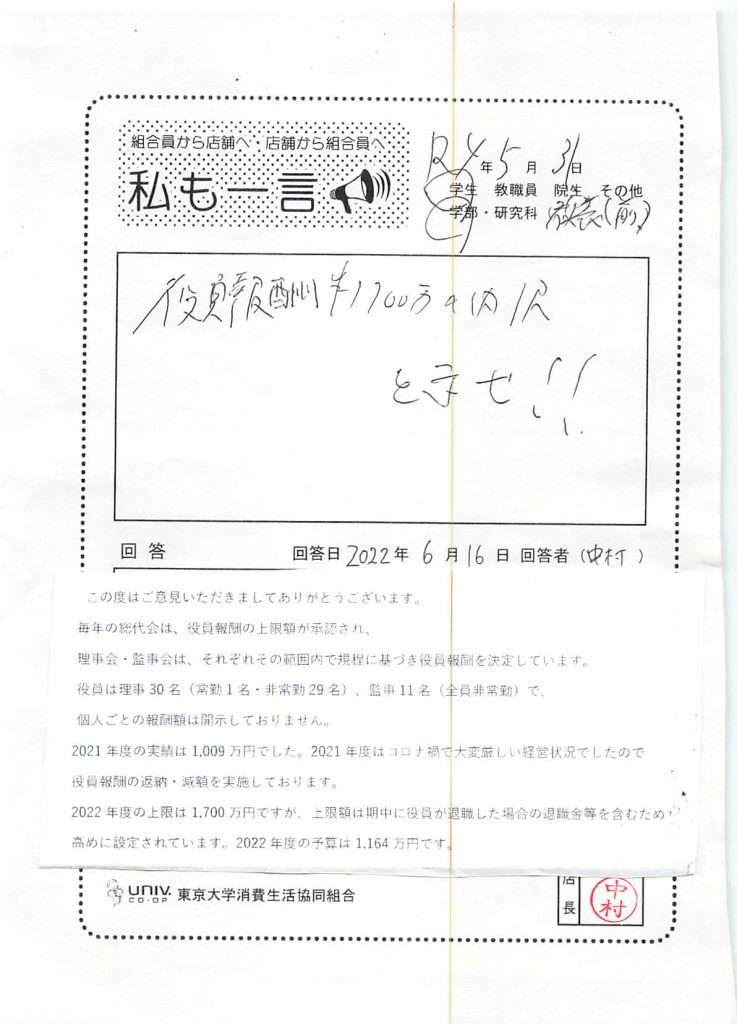 組合員から店舗へ・店舗から組合員へ
私も一言
R4年5月31日
学生 教職員 院生 その他
学部・研究科 (前)
役員報酬¥1700万の内訳
を示せ!!
回答 回答日2022年6月16日 回答者(中村)
この度はご意見いただきましてありがとうございます。
毎年の総代会は、役員報酬の上限額が承認され、
理事会・監事会は、それぞれその範囲内で規程に基づき役員報酬を決定しています。
役員は理事30名（常勤1名・非常勤29名）、監事11名（全員非常勤）で、
個人ごとの報酬額は開示しておりません。
2021年度の実績は1,009万円でした。2021年度はコロナ禍で大変厳しい経営状況でしたので
役員報酬の返納・減額を実施しております。
2022年度の上限は1,700万円ですが、上限額は期中に役員が退職した場合の退職金等を含むため
高めに設定されています。2022年度の予算は1,164万円です。
UNIV. CO-OP 東京大学消費生活協同組合
店長 中村